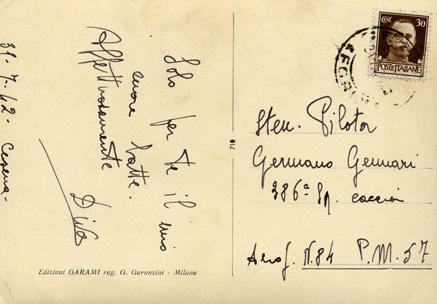 31-7-42- Cesena-
Solo per te il mio
cuore batte.
Affettuosamente
Dina
Edizioni GARAMI rag. G. Garanzini - Milano
710
CENT 30
POSTE ITALIANE
Sten. Pilota
Germano Gennari
386ª Sq. caccia
Aerop. N. 84 P.M. 57